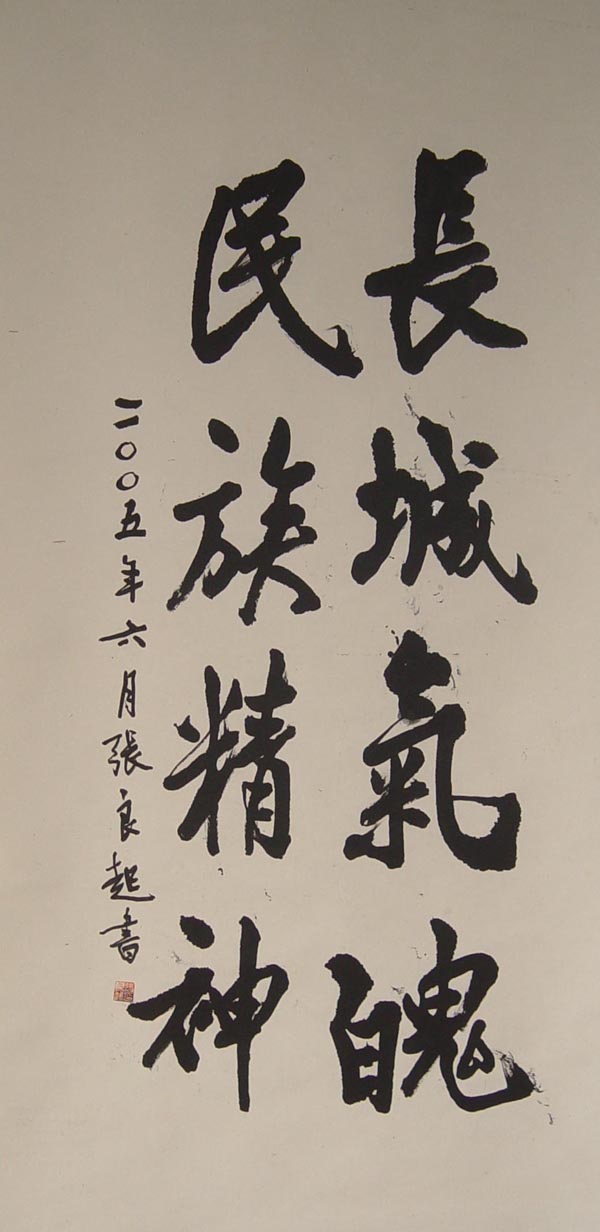 長城氣魄
民族精神
二〇〇五年六月張良起書